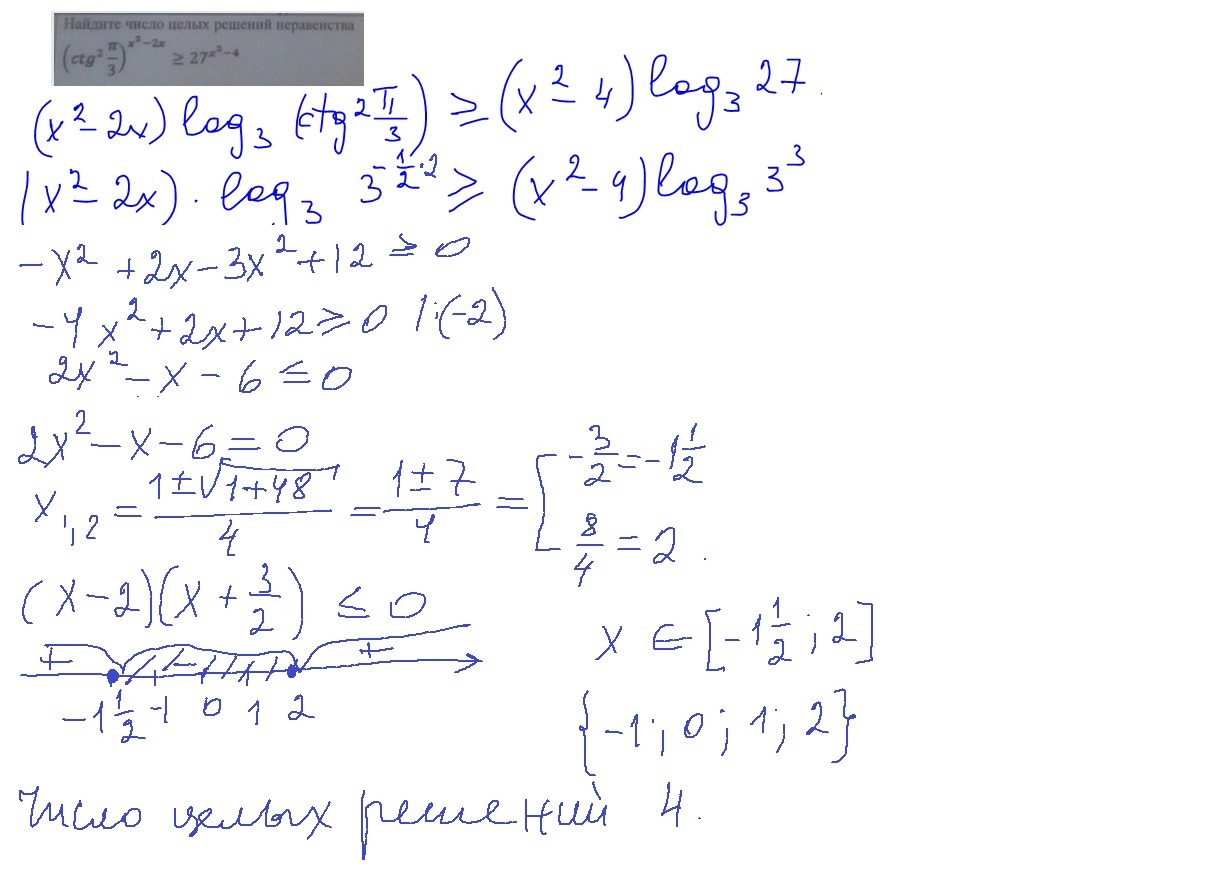 Найдите число целых решений неравенства
(ctg² π/3)^(x²−2x) ≥ 27^(x²−4)
(x²−2x) log₃ (ctg² π/3) ≥ (x²−4) log₃ 27
(x²−2x) · log₃ 3^(−1/2·2) ≥ (x²−4) log₃ 3³
−x² + 2x − 3x² + 12 ≥ 0
−4x² + 2x + 12 ≥ 0 | : (−2)
2x² − x − 6 ≤ 0
2x² − x − 6 = 0
x₁,₂ = (1 ± √(1+48))/4 = (1 ± 7)/4 = [ −3/2 = −1 1/2
8/4 = 2.
(x−2)(x + 3/2) ≤ 0
x ∈ [−1 1/2 ; 2]
+ − +
−1 1/2 −1 0 1 2
{−1; 0; 1; 2}
Число целых решений 4.